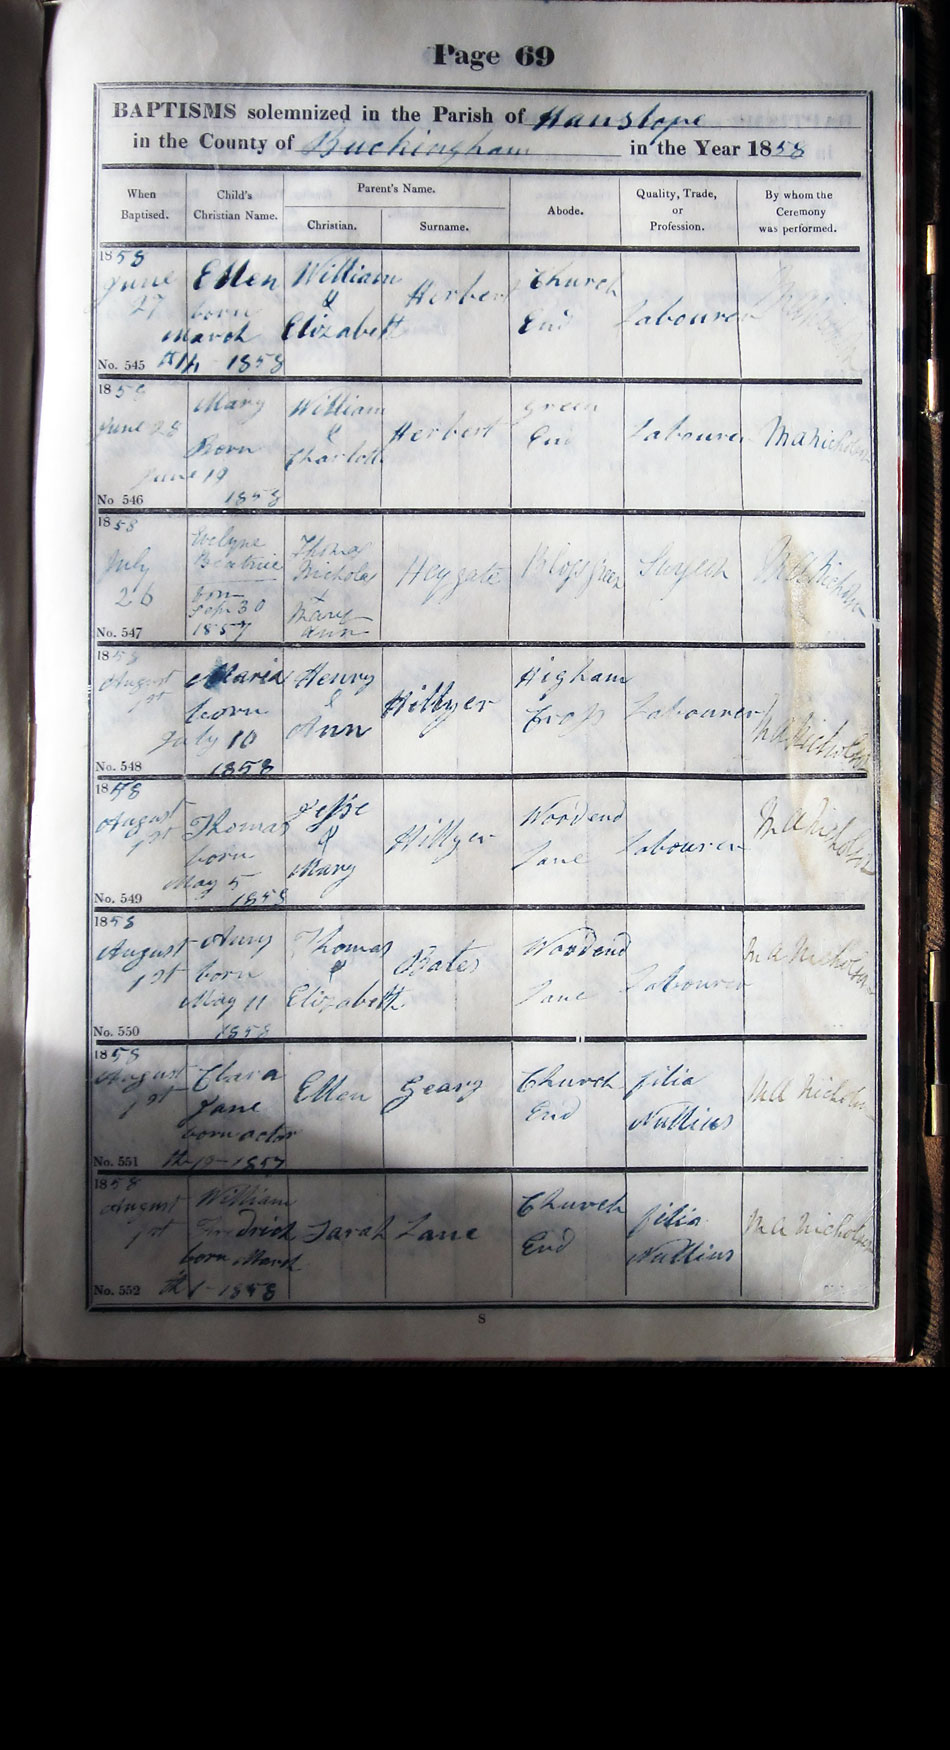 Page 69
BAPTISMS solemnized in the Parish of Hanslope
in the County of Buckingham in the Year 1858
When Baptised.
Child's Christian Name.
Parent's Name.
Christian.
Surname.
Abode.
Quality, Trade, or Profession.
By whom the Ceremony was performed.
1858
June 27
Ellen born March 14 1858
William & Elizabeth
Herbert
Church End
Labourer
No. 545
1858
June 28
Mary Born June 19 1858
William & Charlotte
Herbert
Green End
Labourer
M A Nicholson
No 546
1858
July 26
Evelyne Beatrice born Sepr 30 1857
Thomas Nicholas & Mary Ann
Heygate
Surgeon
M A Nicholson
No. 547
1858
August 1st
Maria born July 10 1858
Henry & Ann
Hillyer
Higham Cross
Labourer
M A Nicholson
No. 548
1858
August 1st
Thomas born May 5 1858
Jesse & Mary
Hillyer
Woodend Lane
Labourer
M A Nicholson
No. 549
1858
August 1st
Amy born May 11 1858
Thomas & Elizabeth
Bates
Woodend Lane
Labourer
M A Nicholson
No. 550
1858
August 1st
Clara Jane born Octor 1857
Ellen
Geary
Church End
filia Nullius
M A Nicholson
No. 551
1858
August 1st
William Fredrick born March 1858
Sarah
Lane
Church End
filia Nullius
M A Nicholson
No. 552
S